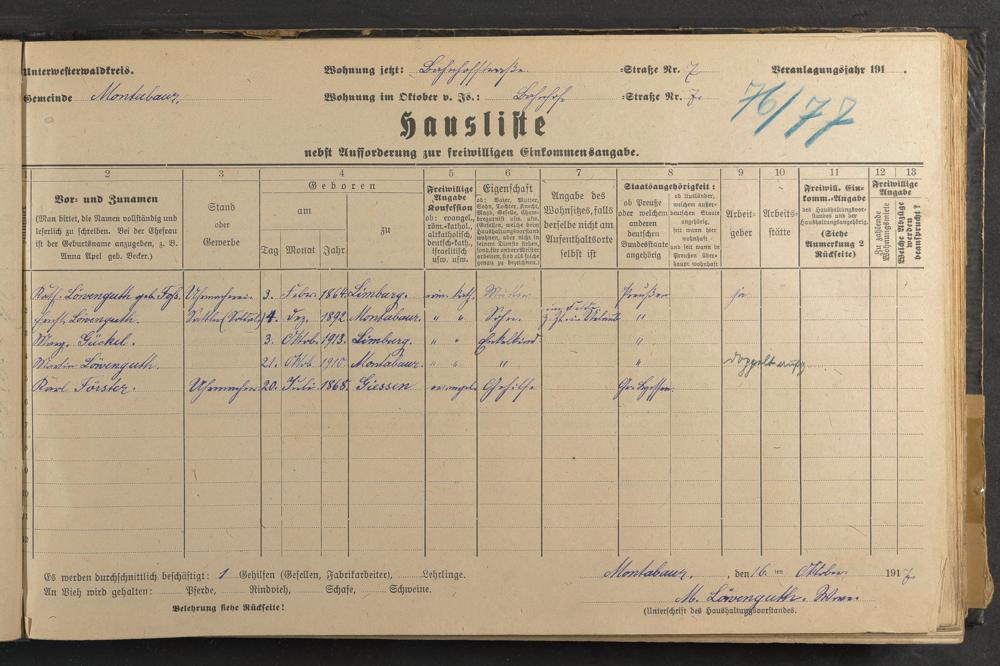 Unterwesterwaldkreis. Wohnung jetzt: Bahnhofstraße Straße Nr. 7 Veranlagungsjahr 191 .
Gemeinde Montabaur. Wohnung im Oktober v. Js.: Bahnhof Straße Nr. 7.
76/77
Hausliste
nebst Aufforderung zur freiwilligen Einkommensangabe.
1 2 3 4 5 6 7 8 9 10 11 12 13
Vor- und Zunamen
(Man bittet, die Namen vollständig und
leserlich zu schreiben. Bei der Ehefrau
ist der Geburtsname anzugeben, z. B.
Anna Apel geb. Becker.)
Stand
oder
Gewerbe
Geboren
am
zu
Tag Monat Jahr
Freiwillige
Angabe
Konfession
ob: evangel.,
röm.-kathol.,
altkatholisch,
deutsch-kath.,
israelitisch
usw. usw.
Eigenschaft
Angabe des
Wohnsitzes, falls
derselbe nicht am
Aufenthaltsorte
selbst ist
Staatsangehörigkeit:
ob Preuße
oder welchem
anderen
deutschen
Bundesstaate
angehörig
ob Ausländer,
welchem außer-
deutschen Staate
angehörig,
seit wann hier
wohnhaft
und seit wann in
Preußen über-
haupt wohnhaft
Arbeit-
geber
Arbeits-
stätte
Freiwill. Ein-
komm.-Angabe
des Haushaltungsvor-
standes und der
Haushaltungsangehörig.
(Siehe
Anmerkung 2
Rückseite)
Freiwillige
Angabe
Zu zahlende
Wohnungsmiete
Welche Abzüge
werden
beansprucht?
Kath. Löwenguth geb. Fohs. Uhrmacherei 3. Febr. 1864 Limburg. röm. Kath. Mutter Preußen ja
Ernst Löwenguth. Sattler (Soldat) 4. Dez. 1892 Montabaur. " " Sohn. im Felde "
Marg. Gückel. 3. Oktob. 1913. Limburg. " " Enkelkind. "
Martin Löwenguth. 21. Oktob. 1910. Montabaur. " " " " doppelt
Karl Förster. Uhrmacher 20. Juli 1868. Giessen evangel. Gehilfe Gr. Hessen
Es werden durchschnittlich beschäftigt: 1 Gehilfen (Gesellen, Fabrikarbeiter), Lehrlinge.
An Vieh wird gehalten: Pferde, Rindvieh, Schafe, Schweine.
Belehrung siehe Rückseite!
Montabaur, den 16. ten Oktober 1917.
M. Löwenguth. Wwe.
(Unterschrift des Haushaltungsvorstandes.